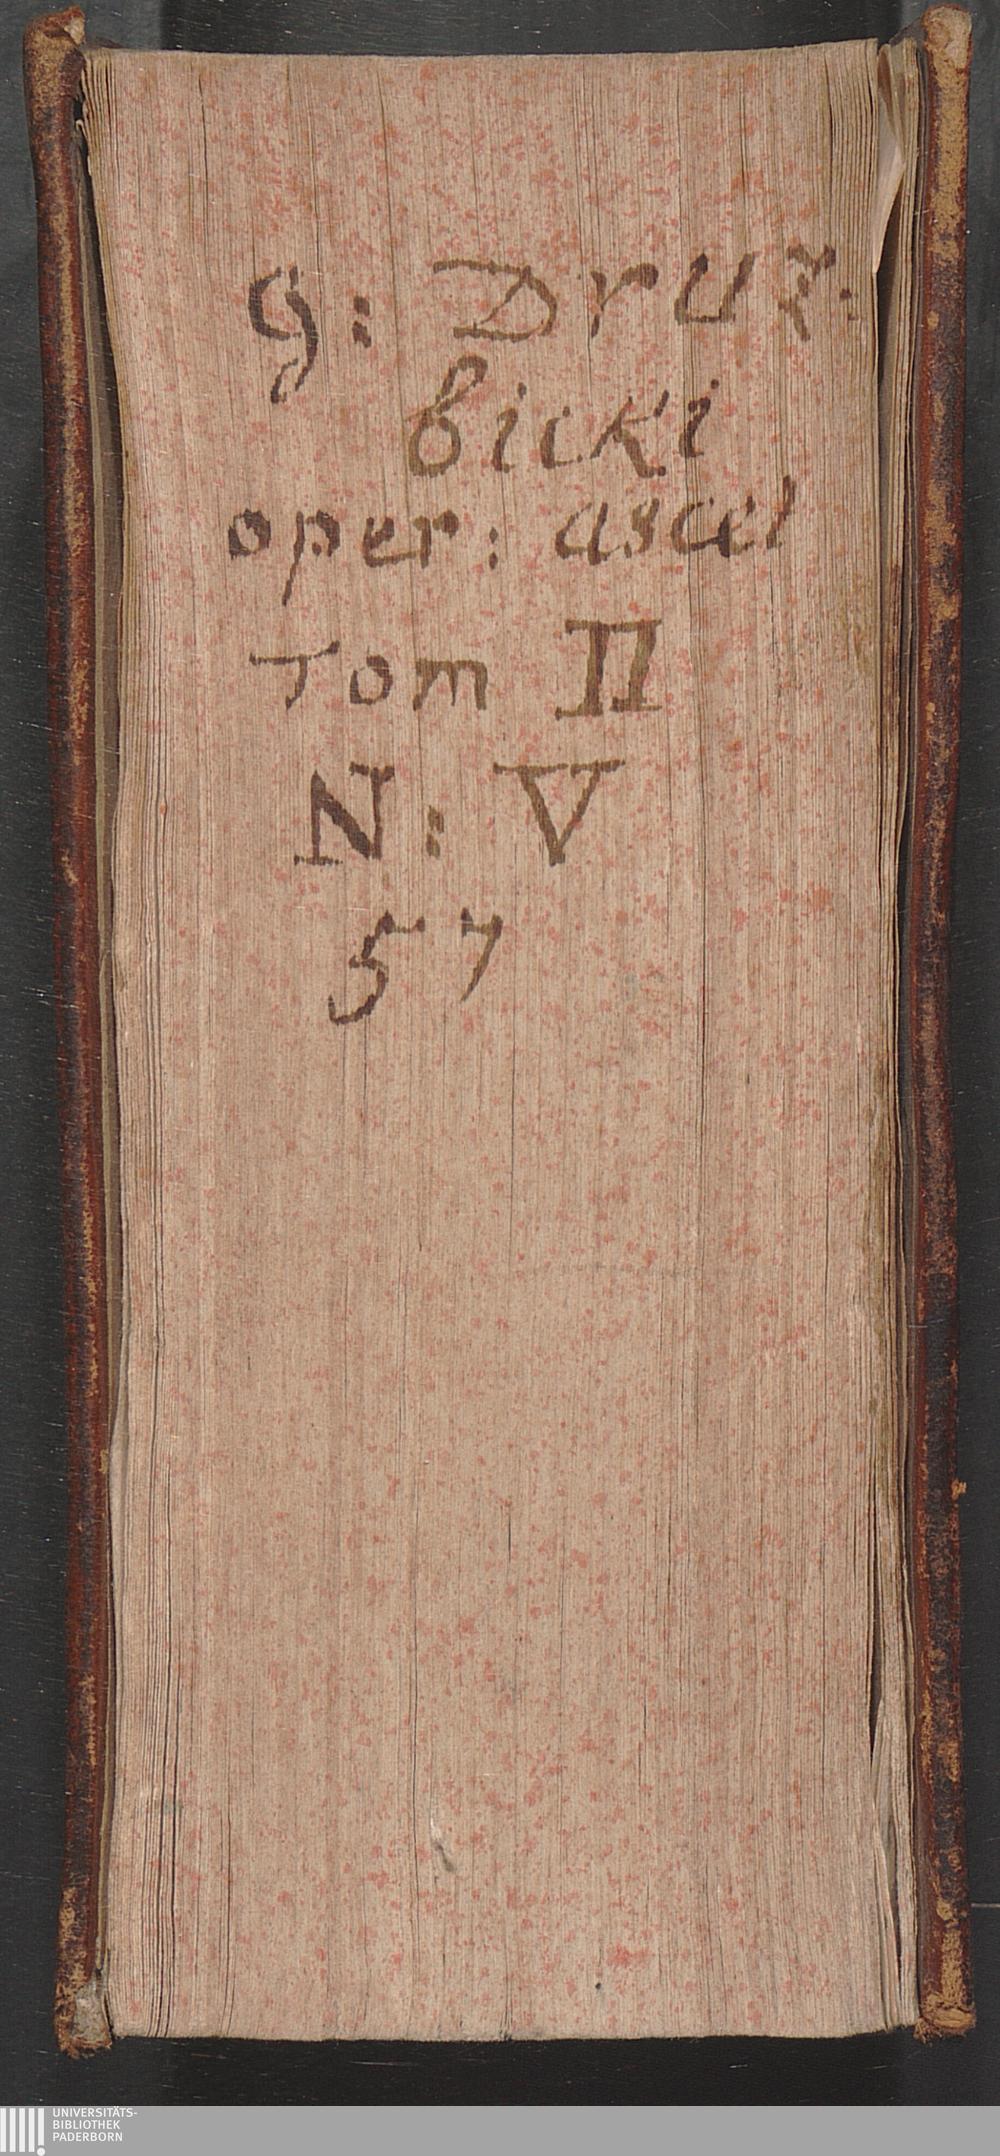 G: Druz:
bicki
oper: ascet
Tom II
N: V
57
UNIVERSITÄTS-
BIBLIOTHEK
PADERBORN